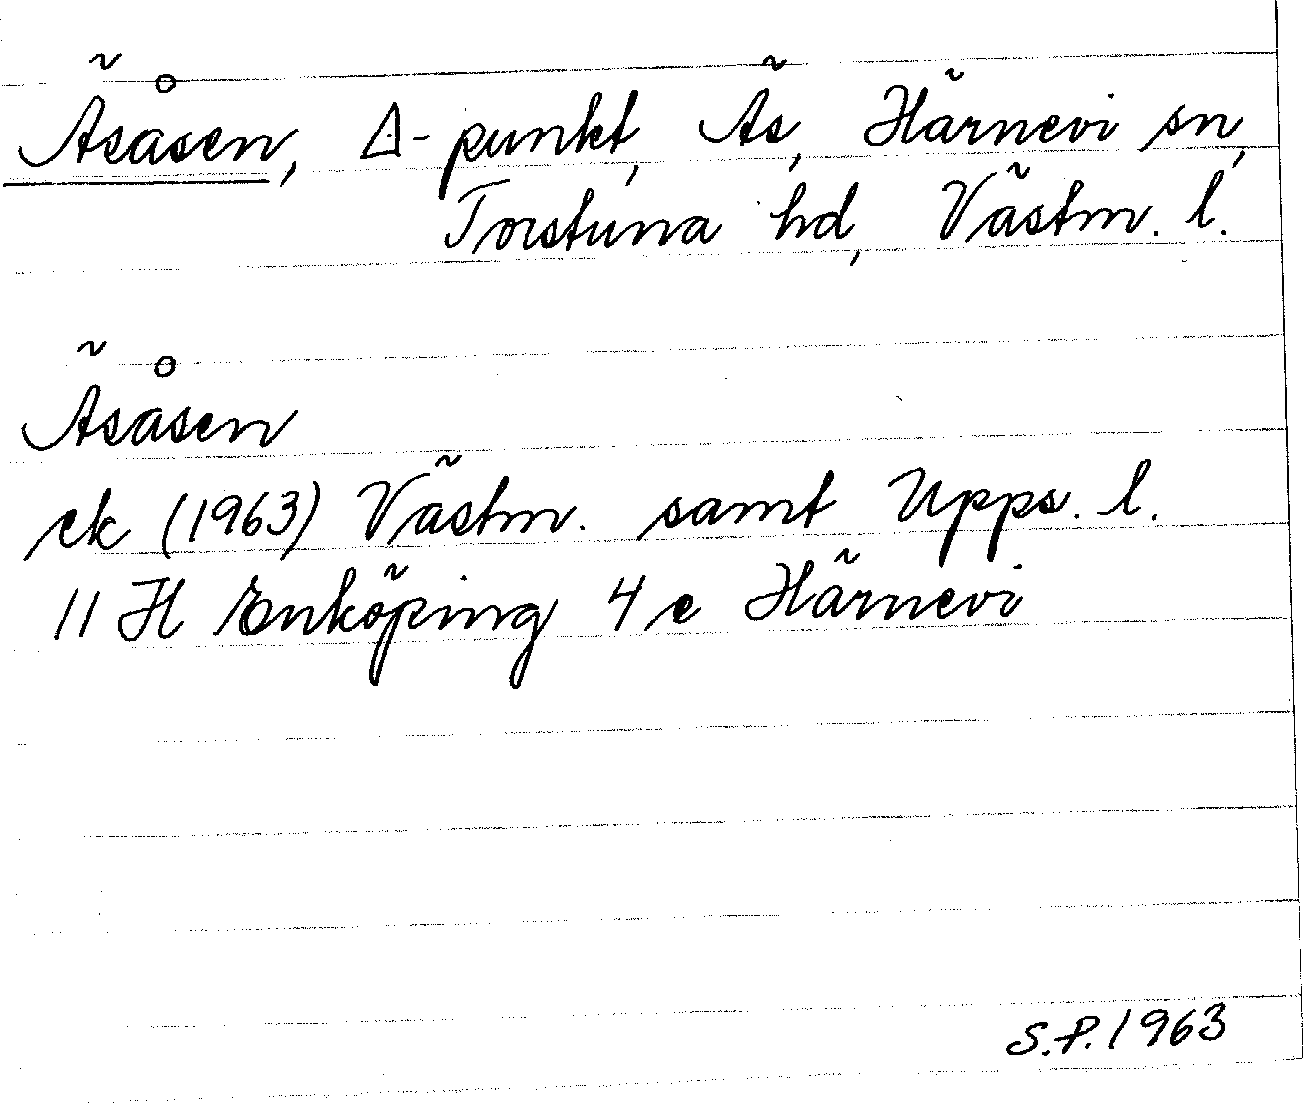 Äsåsen, Δ-punkt, Äs, Härnevi sn,
Torstuna hd, Västm. l.
Äsåsen
ek (1963) Västm. samt Upps. l.
11 H Enköping 4 e Härnevi
S.P. 1963